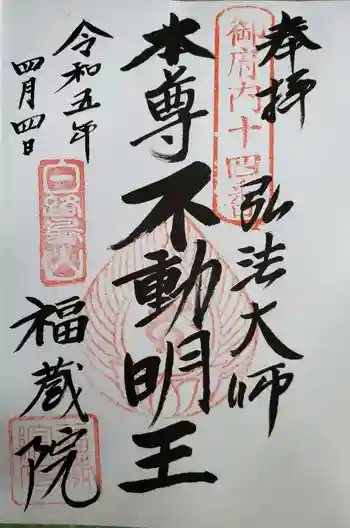 奉拝
弘法大師
御府内十四番
本尊不動明王
令和五年
四月四日
白鷺山
福蔵院